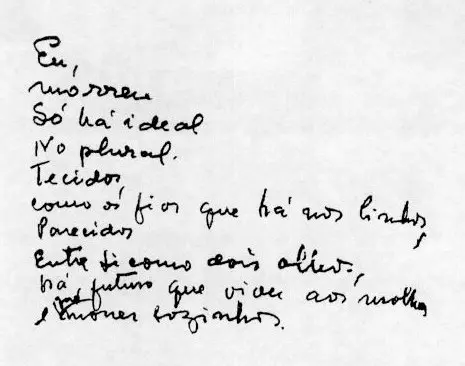 Eu,
morreu
Só há ideal
No plural.
Tecidos,
como os fios que há nos linhos,
Parecidos
Entre si como dois olhos,
há, futuro que viver aos molhos
e morrer sozinhos.